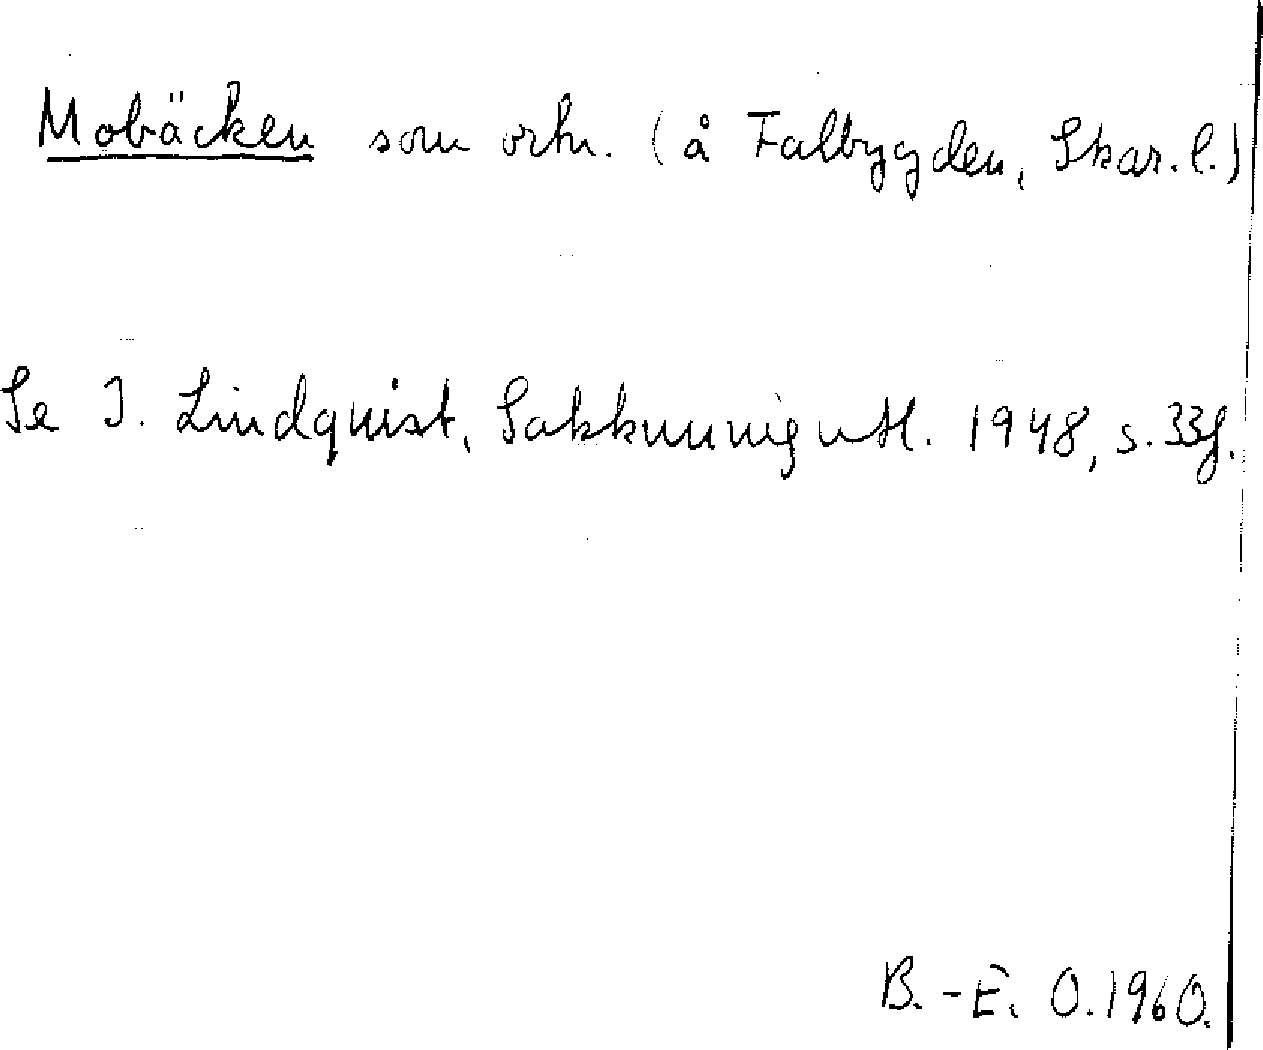 Mobäcken som ortn. (å Falbygden, Skar. l.)
Se I. Lindquist, Sakkunnigutl. 1948, s. 33f.
B.-E. O. 1960.